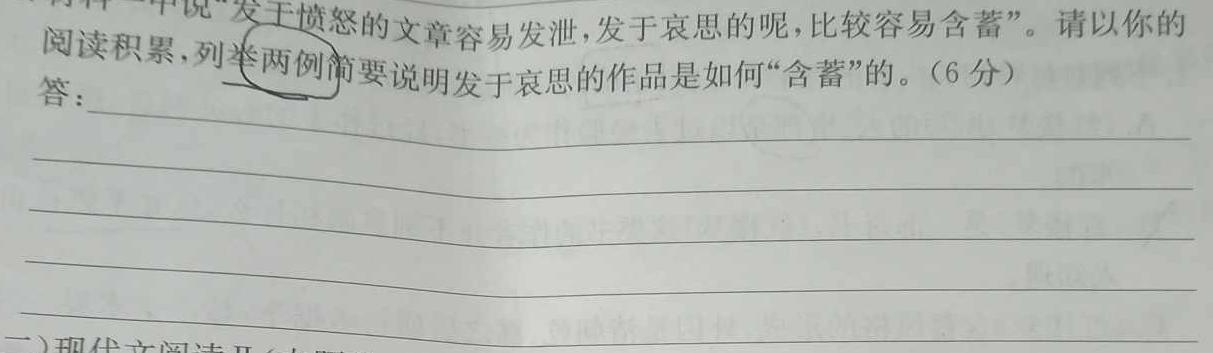 材料一中说“发于愤怒的文章容易发泄,发于哀思的呢,比较容易含蓄”。请以你的
阅读积累,列举两例简要说明发于哀思的作品是如何“含蓄”的。(6分)
答:
二)现代文阅读Ⅱ(